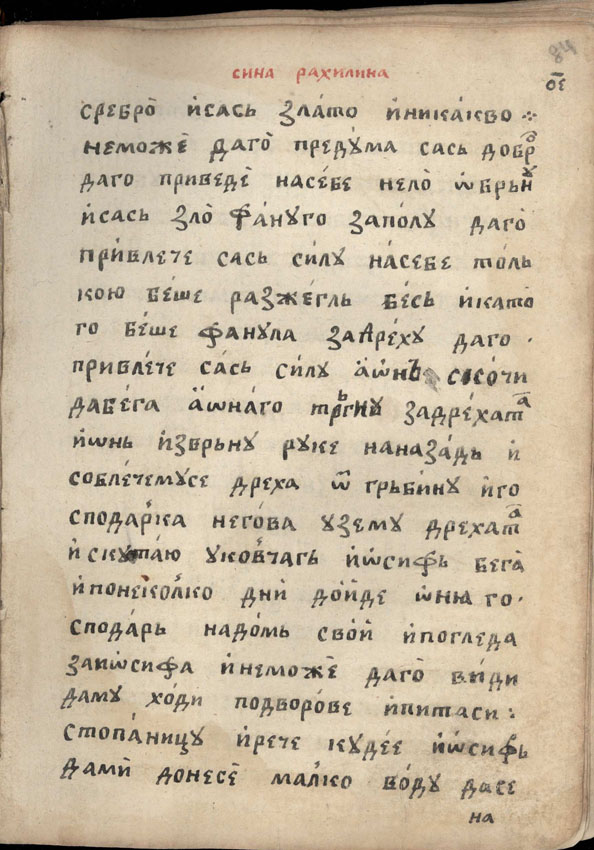 сина рахилина
84
о҃е
сребро̀ и҆сась злато и҆никакво ⁘
неможѐ даго̀ предꙋма сась добро̀
даго приведѐ насе́бе нело̀ ѡ҆брьнꙋ
и҆сась зло̀ фа́нꙋго запо́лꙋ даго̀
при́влече сась си́лꙋ на́себе толь
кою бе́ше разже́гль бе́сь и҆като̀
го бе́ше фанꙋла задре́хꙋ даго ·
привле́че са́сь силꙋ а҆ѡ҆нь скочи
дабе́га а҆ѡ҆на́го трьгнꙋ задре́хата
и҆ѡ҆нь и҆зврьнꙋ рꙋке наназа́дь и҆
собле́чемꙋсе дреха ѿ грьби́нꙋ и҆го
спода́рка него́ва ꙋземꙋ дрехата
и҆скꙋтаю ꙋко́вчагь и҆ѡ҆сифь бега̀
и҆понеко́лко дни̑ до́йде ѡ҆ню го ·
спода́рь надо́мь сво́й и҆погледа
заиѡ҆сифа и҆неможѐ даго̀ ви́ди
дамꙋ хо́ди подворо́ве и҆питаси :
стопа́ницꙋ и҆рече кꙋдѐе и҆ѡ҆сифь
дамѝ донесѐ ма́лко во́дꙋ дасе
на